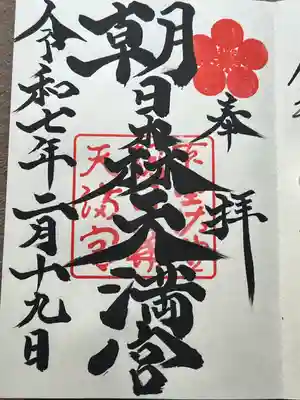 奉拝
朝日森天満宮
天満宮
令和七年二月十九日